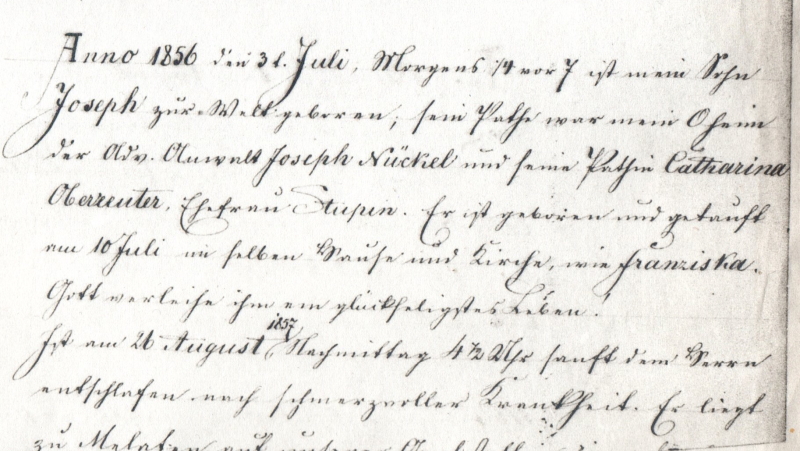 Anno 1856 den 31. Juli, Morgens 1/4 vor 7 ist mein Sohn
Joseph zur Welt geboren, sein Pathe war mein Oheim
der Adv. Anwalt Joseph Nückel und seine Pathin Catharina
Oberreuter, Ehefrau Stupin. Er ist geboren und getauft
am 10 Juli im selben Hause und Kirche, wie Franziska.
Gott verleihe ihm ein glückseligstes Leben!
Ist am 26 August 1857, Nachmittag 4 1/2 Uhr sanft dem Herrn
entschlafen nach schmerzvoller Krankheit. Er liegt
zu Melaten auf unserer